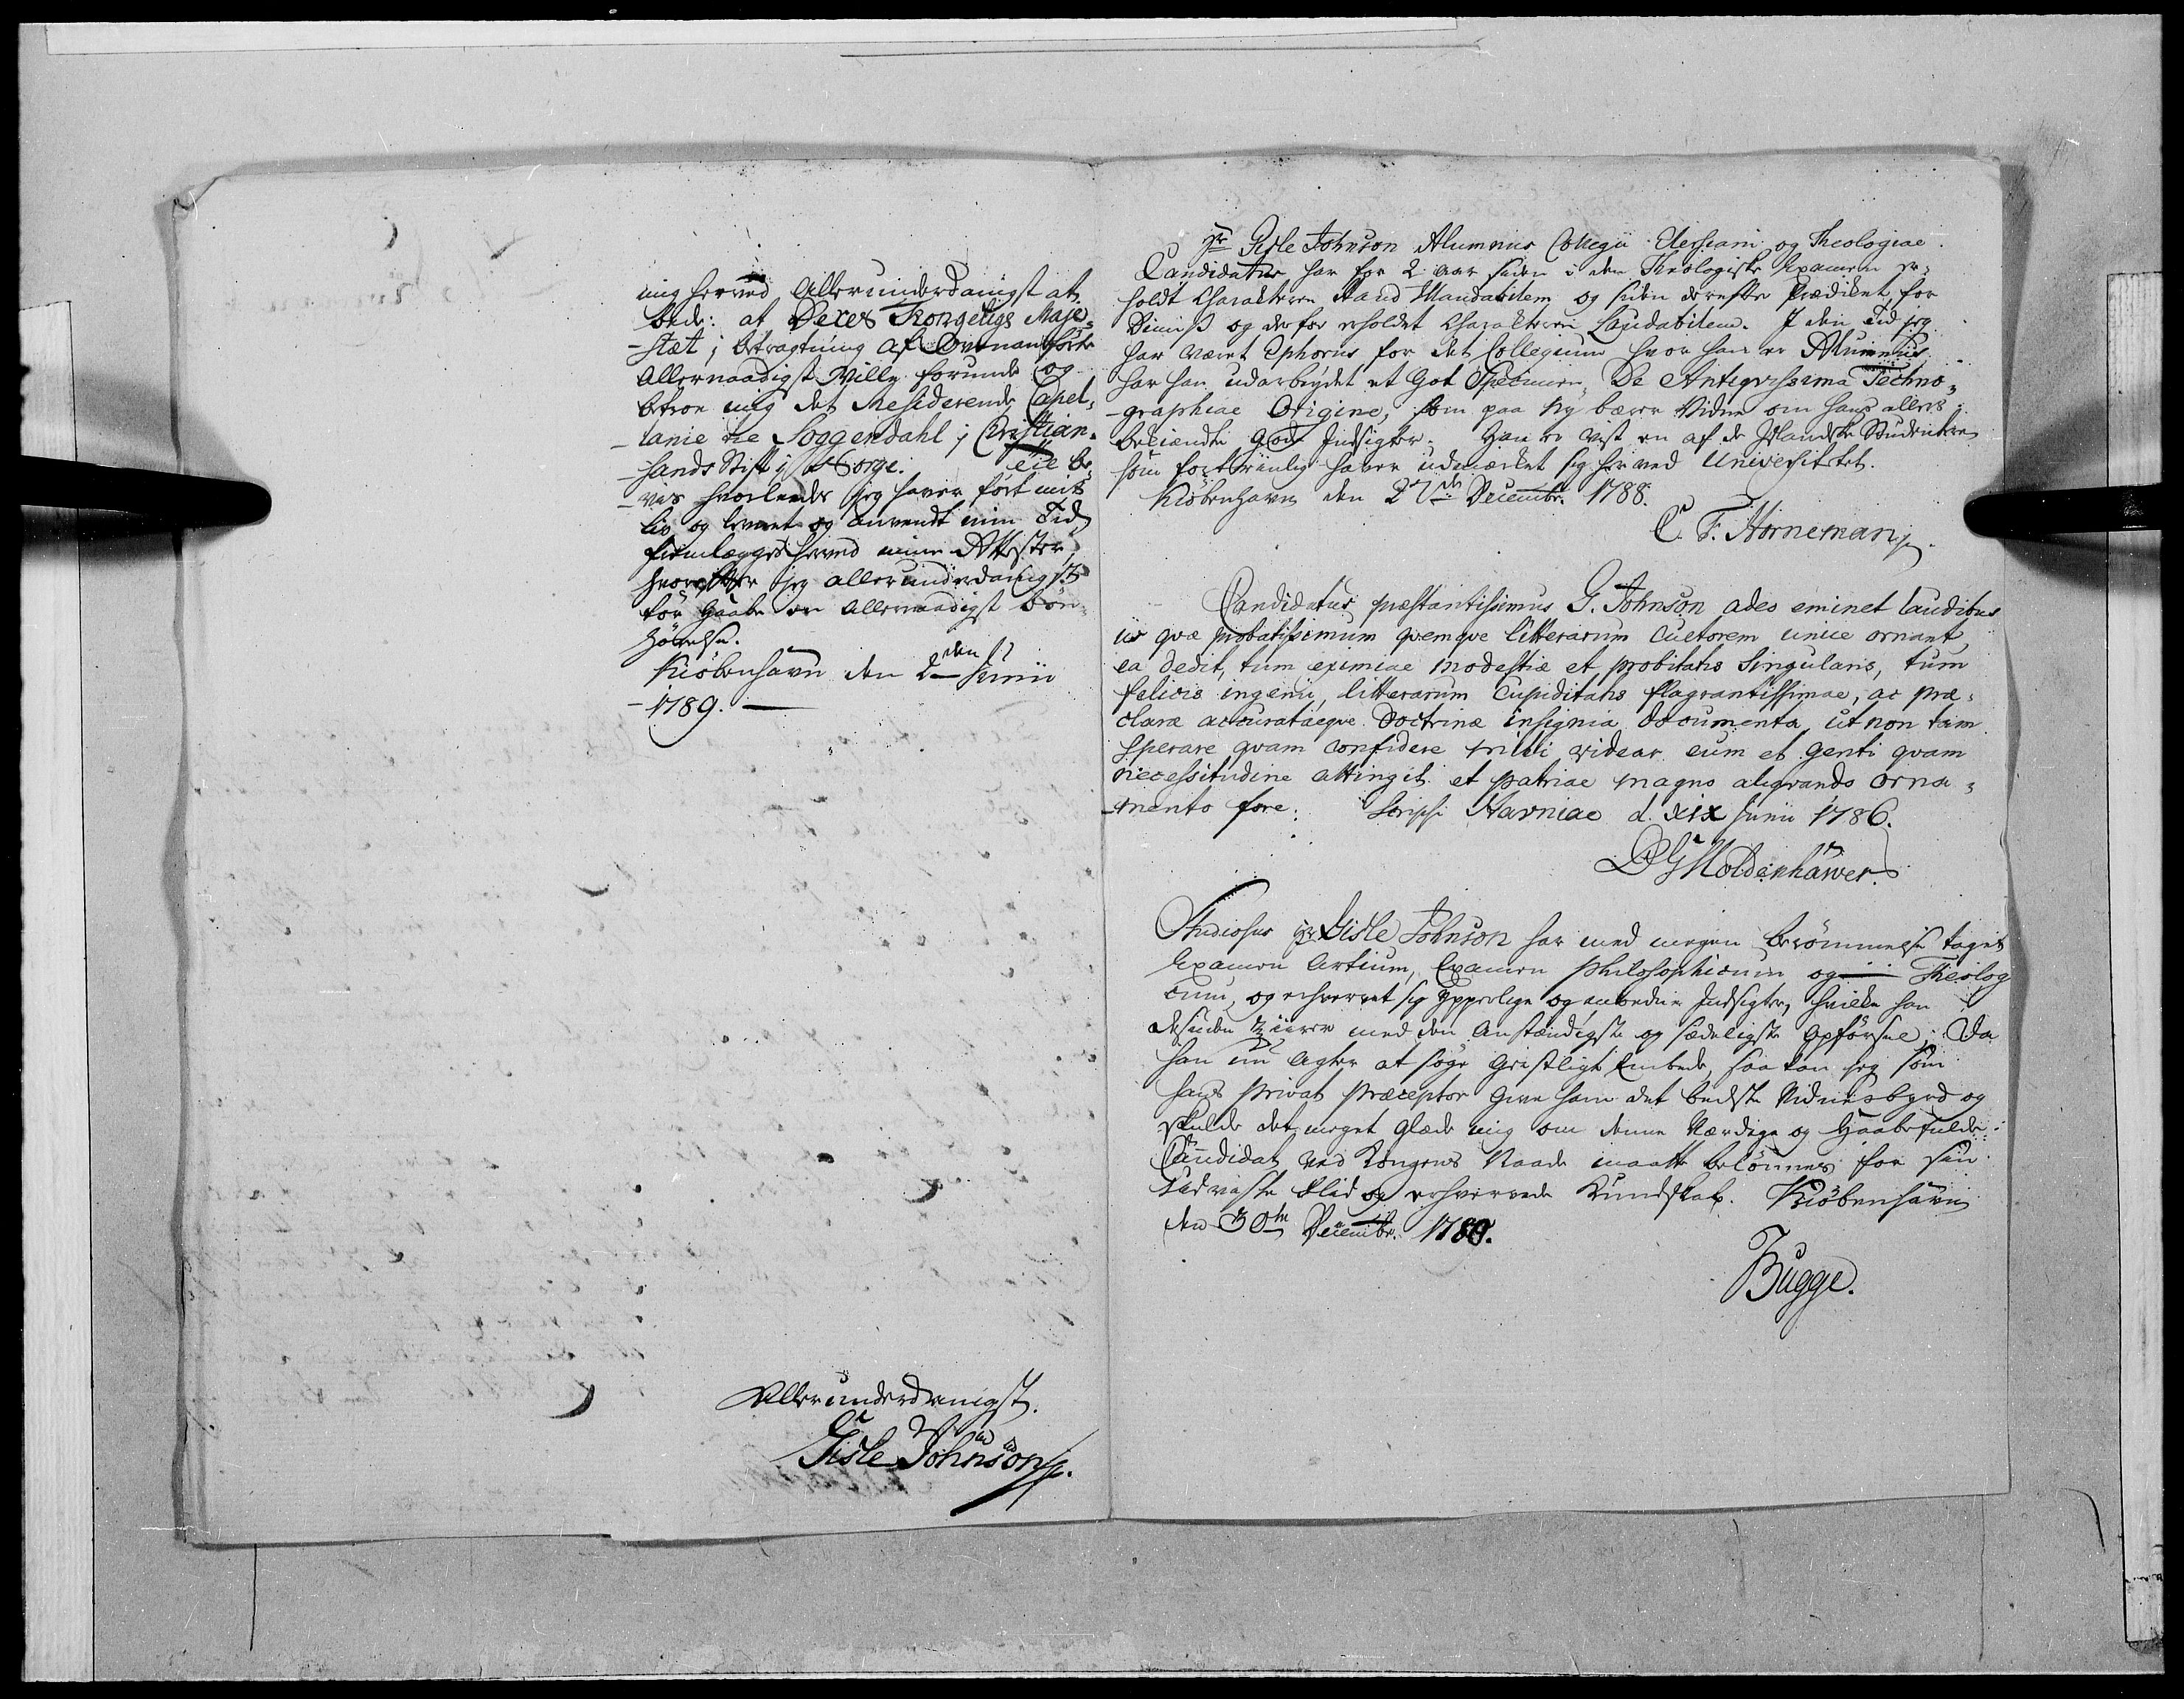 mig herved Allerunderdanigst at
bede: at Deres Kongelige Maje-
-stæt i betragtning af Ovenanførte
Allernaadigst Ville forunde og
betroe mig det Residerende Capel-
-lanie til Soggendahl i Christian-
-sands Stift i Norge. til be-
-vis hvorledes jeg haver ført mit
Liv og levnet og anvendt min Tid
fremlægges herved mine Attester,
hvorefter jeg allerunderdanigst
tør haabe en Allernaadigst Bøn-
hørelse.
Kiøbenhavn den 2den Junii
-1789.-
Allerunderdanigst.
Gisle Johnson
Hr Gisle Johnson Alumnus Collegii Elersiani og Theologiae
Candidatus har for 2 aar siden i den Theologiske Examen er-
holdt Charakteren Haud Illaudabilem og siden derefter Prædiket for
Dimiss og derfor erholdet Charakteren Laudabilem. I den Tid jeg
har været Ephorus for det Collegium hvor han er Alumnus
har han udarbeydet et Got Specimen, De Antiqvissima Techno-
-graphiae Origine, som paa ny bærer Vidne om hans allere-
bekiendte Gode Indsigter. Han er vist en af de Islandske Studentere
som fortrinlig haver udmærket sig her ved Universitetet.
Kiöbenhavn den 27de Decembr. 1788.
C. F. Horneman
Candidatus præstantissimus G. Johnson adeo eminet laudibus
iis qvæ probatissimum qvemqve litterarum Cultorem unice ornant,
ea dedit, tum eximiae modestiæ et probitatis singularis, tum
felicis ingenii, litterarum Cupiditatis flagrantissimae, ac præ-
claræ accuratæqve Doctrinæ insignia documenta, ut non tam
sperare qvam confidere mihi videar eum et genti qvam
necessitudine attingit et patriae magno aliqvando orna-
-mento fore. Scripsi Havniae d. XIX Junii 1786.
D G Moldenhawer.
Studiosus Hr Gisle Johnson har med megen Berömmelse taget
Examen Artium, Examen philosophicum og Theolog
cum, og erhvervet sig ypperlige og anvendte Indsigter, hvilke han
desuden zirer med den Anstændigste og sædeligste Opførsel. Da
han nu Agter at søge Geistligt Embede, saa kan jeg som
hans Privat Præceptor Give ham det beste Vidnesbyrd og
skulde det meget glæde mig om denne Værdige og Haabefulde
Candidat ved Kongens Naade maatte belönnes for sin
udviste Flid og erhvervede Kundskab. Kiöbenhavn
den 30te Decembr. 1788.
Bugge.